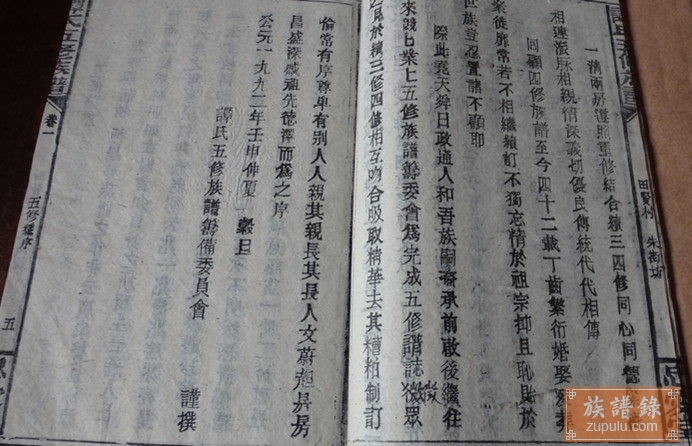 譚氏五修族譜
一溝兩房遵照重修結合續三四修同心同德
相連派脉相親情深義切優良傳統代代相傳
回顧四修族譜至今四十二載丁齒繁衍婚娶
衆徙靡常若不相繼續訂不獨忘情於祖宗抑且恥貽於
世族豈忍置諸不顧耶
際此堯天舜日政通人和吾族嗣裔承前啟後繼往
來競比業上五修族譜籌委會爲完成五修譜誌徵
衆
於續三修四修相互吻合吸取精華去其糟粕制訂
倫常有序尊卑有别人人親其親長其長人文蔚起房房
昌盛深感祖先德澤而爲之序
公元一九九二年壬申仲夏 穀旦
譚氏五修族譜籌備委員會
謹撰
氏五修族譜
卷一
五修
序
五
族譜錄
zupulu.com